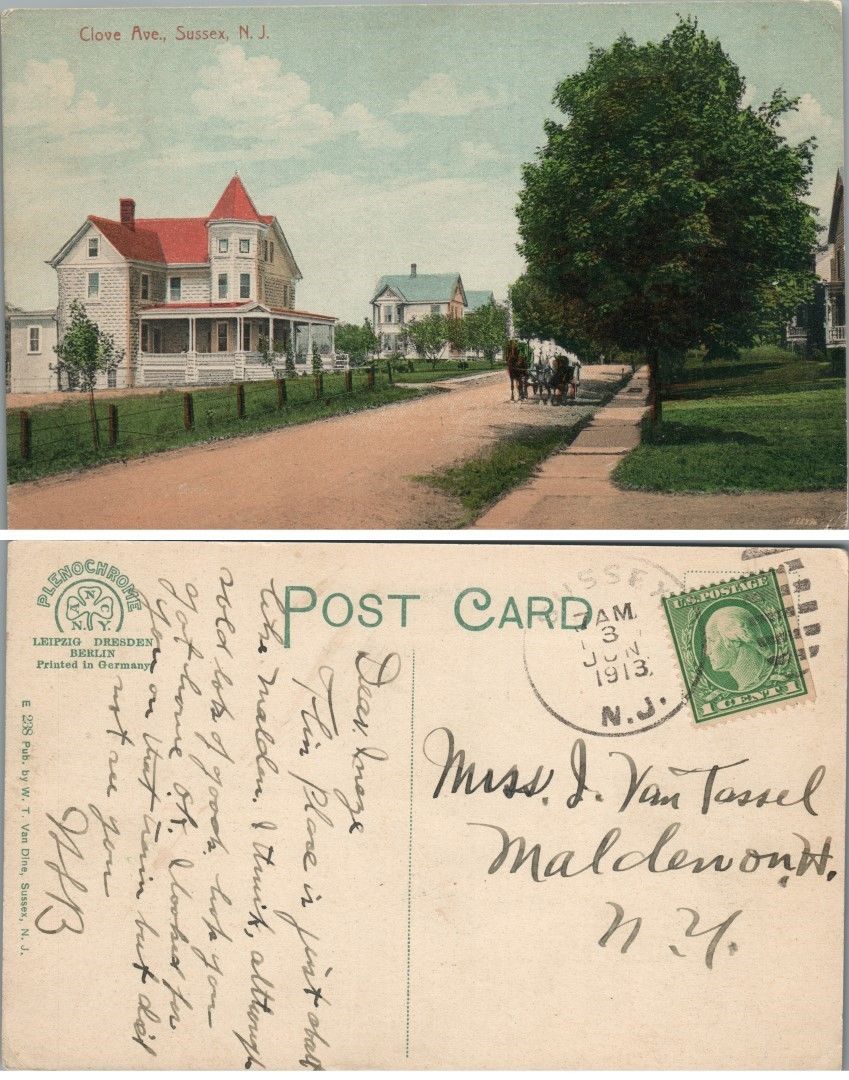 Clove Ave., Sussex, N. J.
PLENOCHROME
ANC
N.Y.
LEIPZIG DRESDEN
BERLIN
Printed in Germany
POST CARD
SUSSEX
AM
3
JUN
1913
N.J.
U.S. POSTAGE
1 CENT 1
Miss. I. Van Tassel
Malden on. H.
N. Y.
Dear Inez
This Place is just about
like Malden. I think, although
sold lots of goods. hope you
got home ok. I looked for
you on that train but did
not see you
E 238 Pub. by W. T. Van Dine, Sussex, N. J.